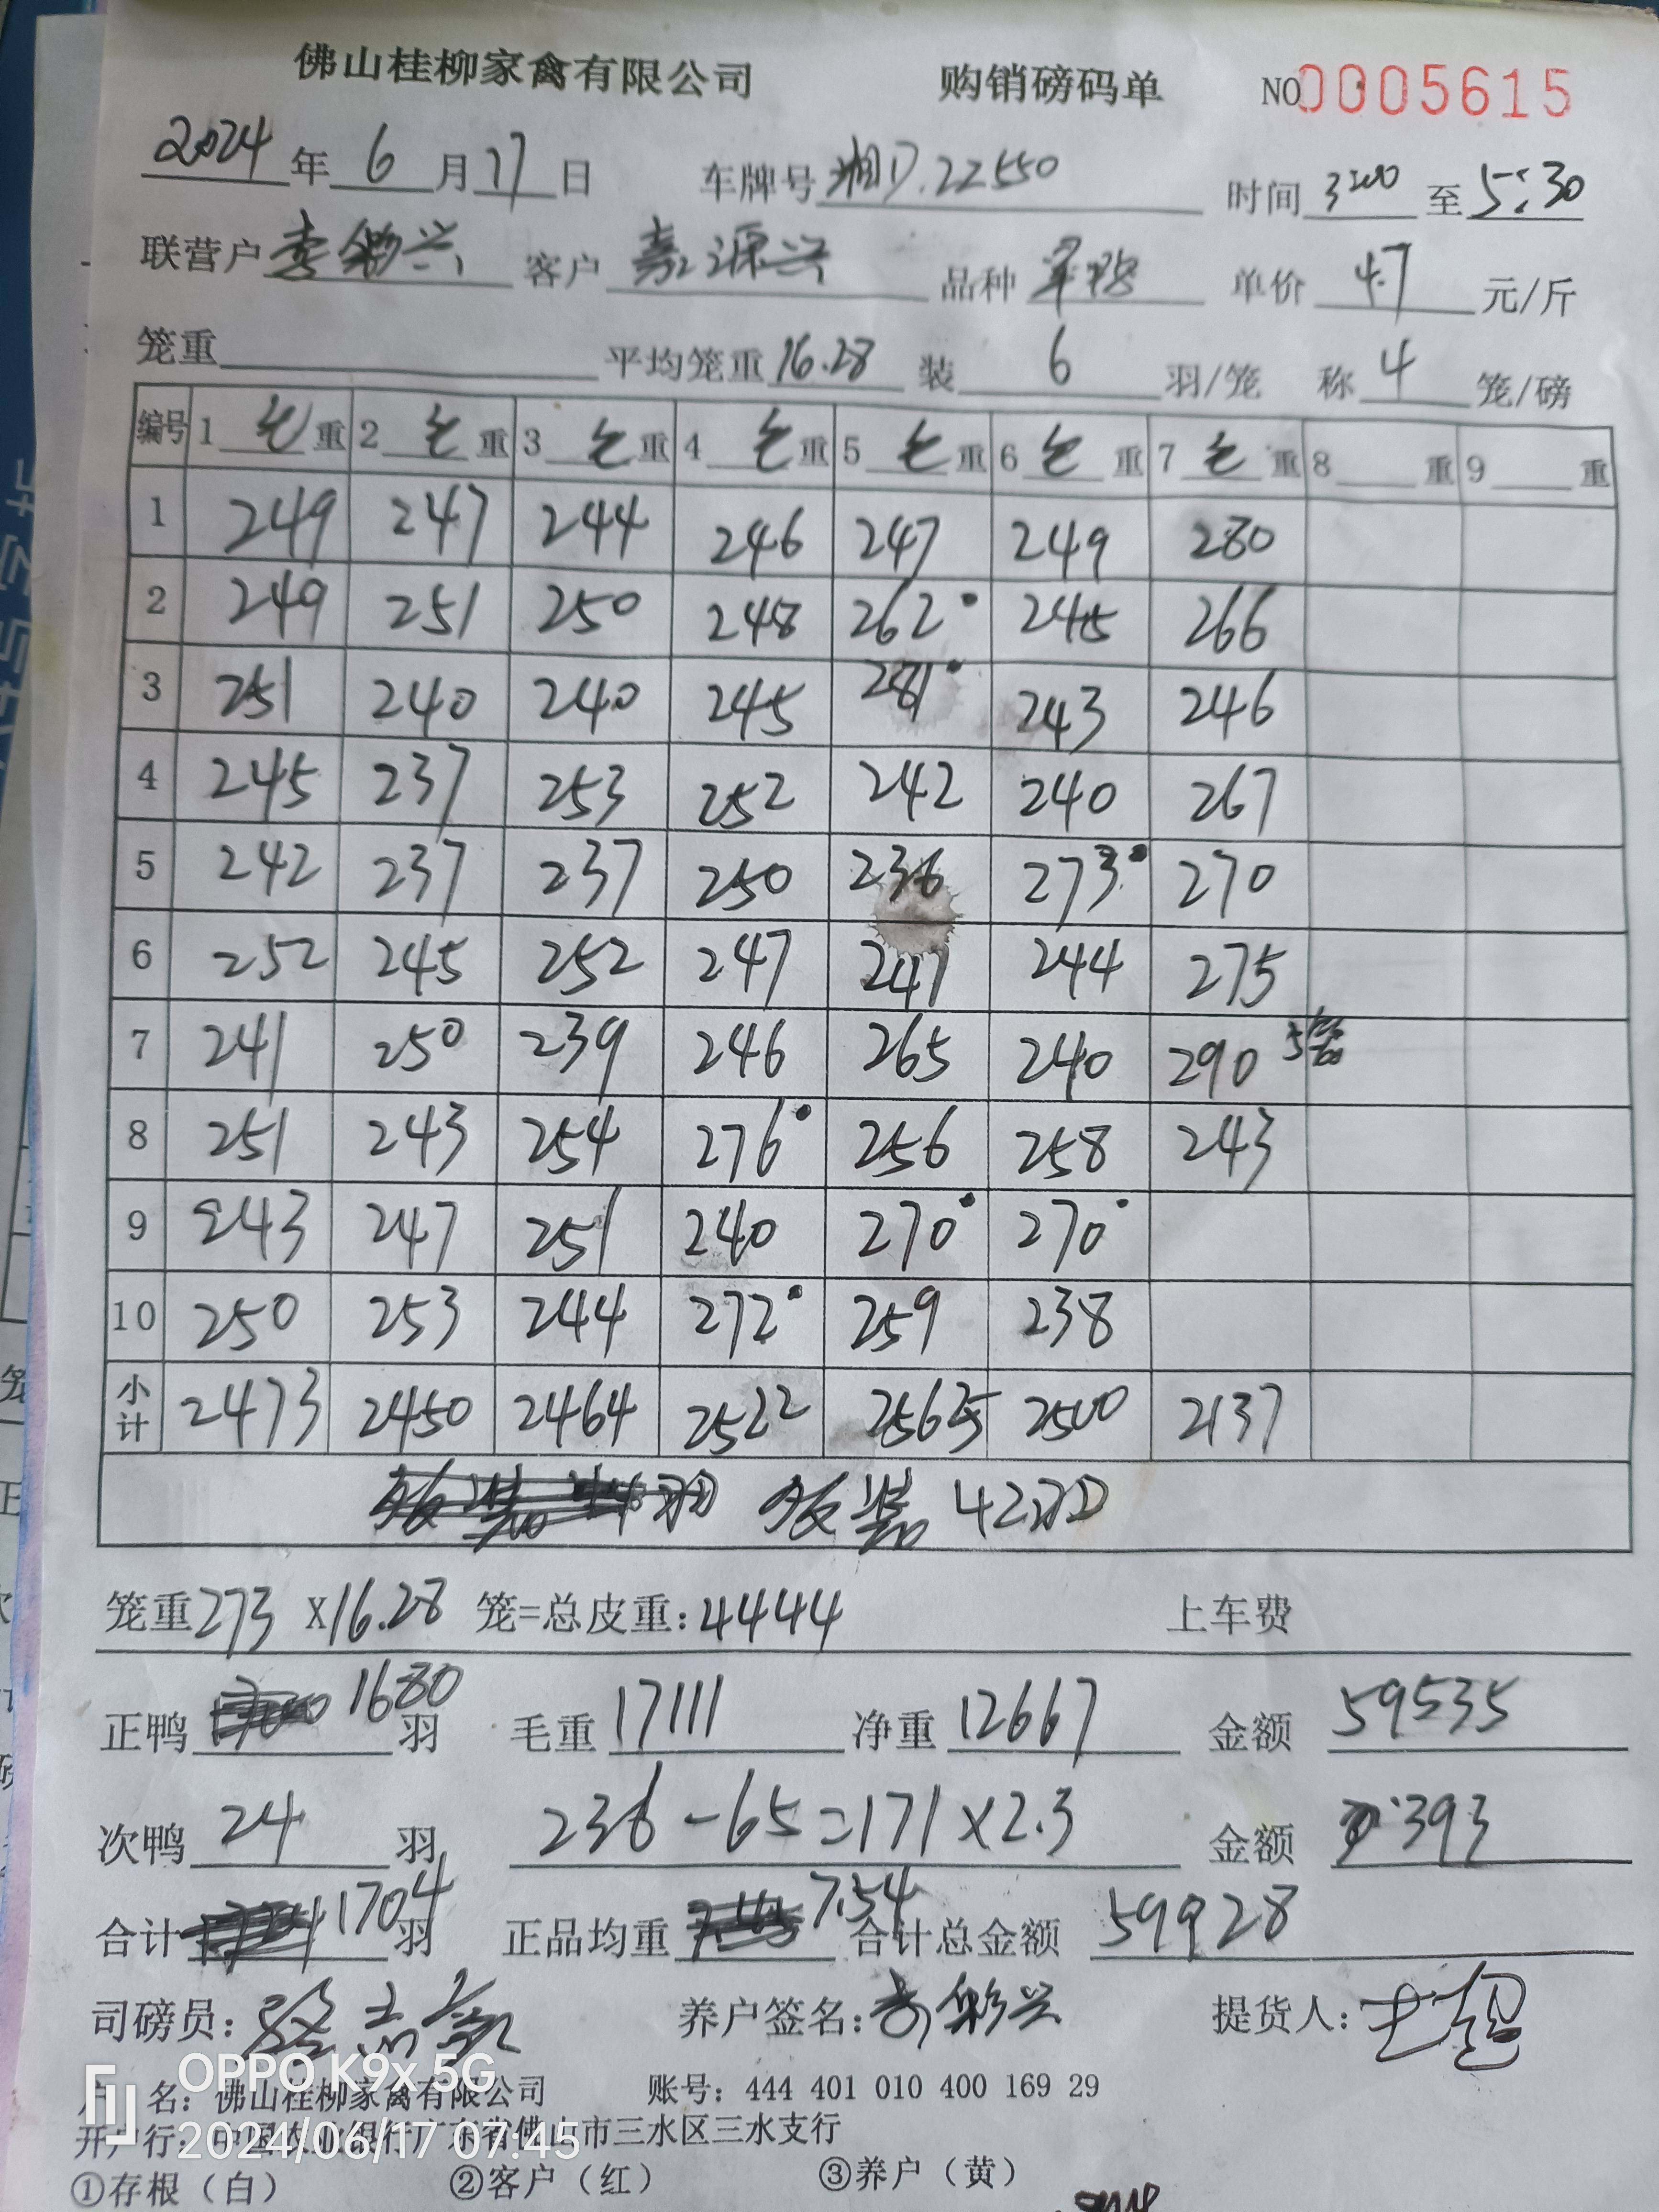 佛山桂柳家禽有限公司 购销磅码单 NO 0005615
2024年6月17日 车牌号湘D.22550 时间3:00至5:30
联营户李彩兴 客户嘉源兴 品种 单价4.7元/斤
笼重 平均笼重16.28 装6羽/笼 称4笼/磅
编号 1毛重 2毛重 3毛重 4毛重 5毛重 6毛重 7毛重 8重 9重
1 249 247 244 246 247 249 280
2 249 251 250 248 262 245 266
3 251 240 240 245 281 243 246
4 245 237 253 252 242 240 267
5 242 237 237 250 236 273 270
6 252 245 252 247 247 244 275
7 241 250 239 246 265 240 290 5笼
8 251 243 254 276 256 258 243
9 243 247 251 240 270 270
10 250 253 244 272 259 238
小计 2473 2450 2464 2522 2565 2500 2137
饭装42羽
笼重273X16.28笼=总皮重:4444 上车费
正鸭1680羽 毛重17111 净重12667 金额59535
次鸭24羽 236-65=171×2.3 金额393
合计1704羽 正品均重7.54 合计总金额59928
司磅员: 养户签名:李彩兴 提货人:
户 名: 佛山桂柳家禽有限公司 账号: 444 401 010 400 169 29
开户行: 中国农业银行广东省佛山市三水区三水支行
①存根（白） ②客户（红） ③养户（黄）
OPPO K9x 5G
2024/06/17 07:45